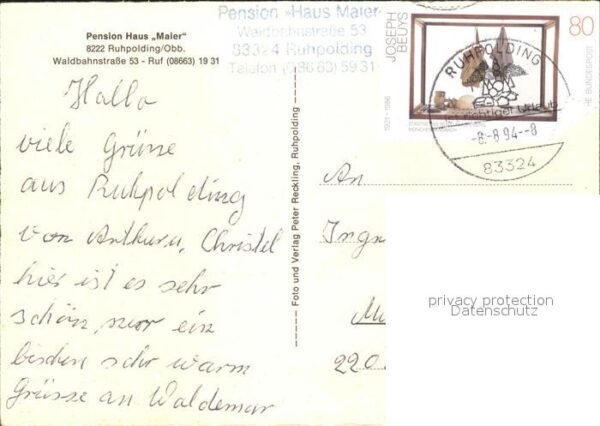 Pension Haus „Maier"
8222 Ruhpolding/Obb.
Waldbahnstraße 53 - Ruf (08663) 19 31
Pension »Haus Maier«
Waldbahnstraße 53
83324 Ruhpolding
Telefon (08663) 5931
JOSEPH
BEUYS
1921-1986
80
HE BUNDESPOST
RUHPOLDING
richtiger Urlaub
-8.-8.94--8
83324
Hallo
viele Grüße
aus Ruhpolding
von Arthur u. Christel
hier ist es sehr
schön, nur ein
bischen sehr warm
Grüsse an Waldemar
Foto und Verlag Peter Reckling, Ruhpolding
An
220
privacy protection
Datenschutz